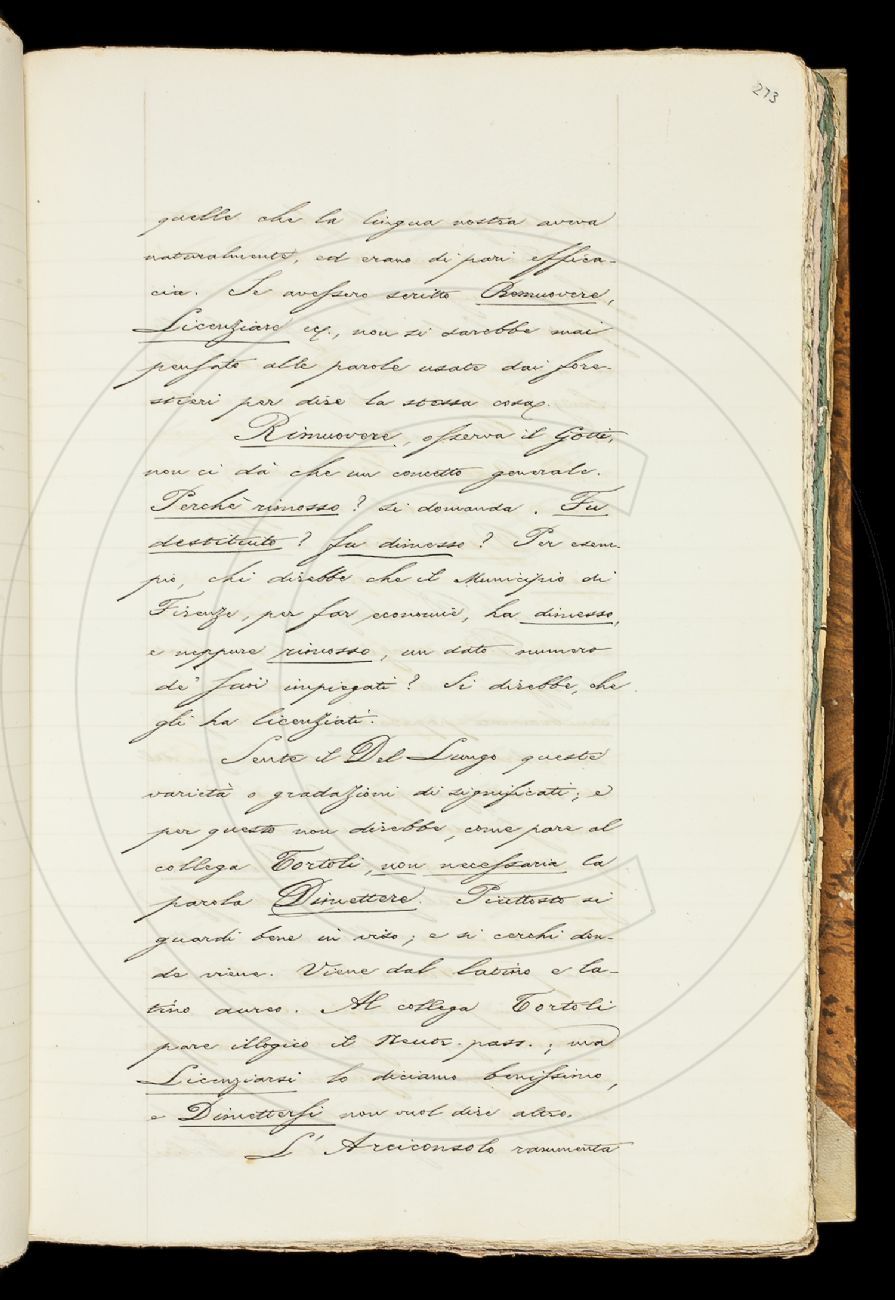 273
quelle che la lingua nostra aveva
naturalmente, ed erano di pari effica-
cia. Se avessero scritto Rimuovere,
Licenziare ec., non si sarebbe mai
pensato alle parole usate dai fore-
stieri per dire la stessa cosa.
Rimuovere, osserva il Gotti,
non ci dà che un concetto generale.
Perchè rimosso? si domanda. Fu
destituito? fu dimesso? Per esem-
pio, chi direbbe che il Municipio di
Firenze, per far economie, ha dimesso,
e neppure rimosso, un dato numero
de' suoi impiegati? Si direbbe, che
gli ha licenziati.
Sente il Del Lungo queste
varietà o gradazioni di significati; e
per questo non direbbe, come pare al
collega Tortoli, non necessaria la
parola Dimettere. Piuttosto si
guardi bene in viso; e si cerchi don-
de viene. Viene dal latino e la-
tino aureo. Al collega Tortoli
pare illogico il Neutr. pass.; ma
Licenziarsi lo diciamo benissimo,
e Dimettersi non vuol dire altro.
L'Arciconsolo rammenta